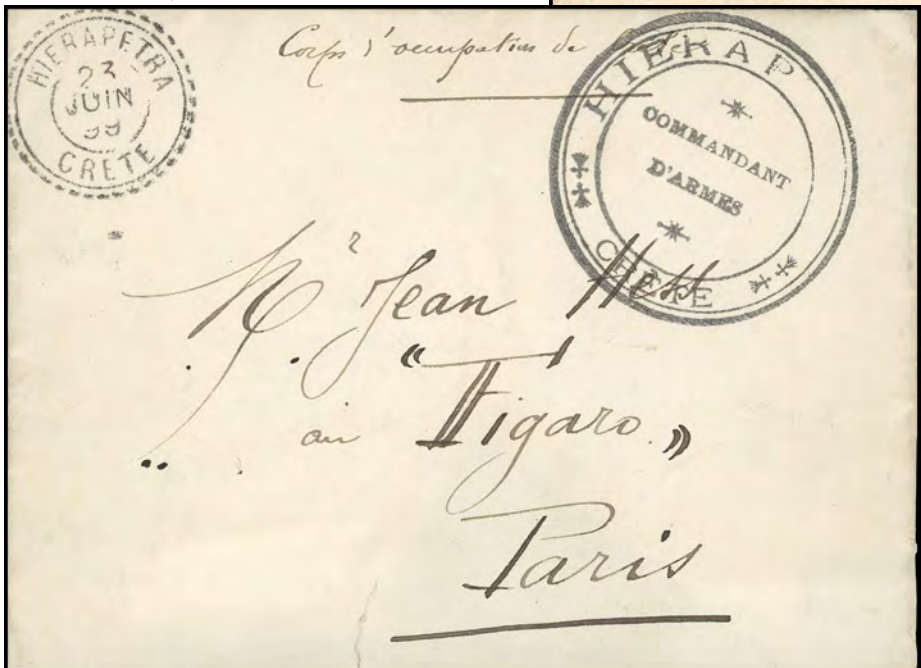 HIERAPETRA
23
JUIN
99
CRETE
Corps d'occupation de
HIÉRAP
COMMANDANT
D'ARMES
CRÈTE
Mr Jean Hess
au "Figaro"
Paris